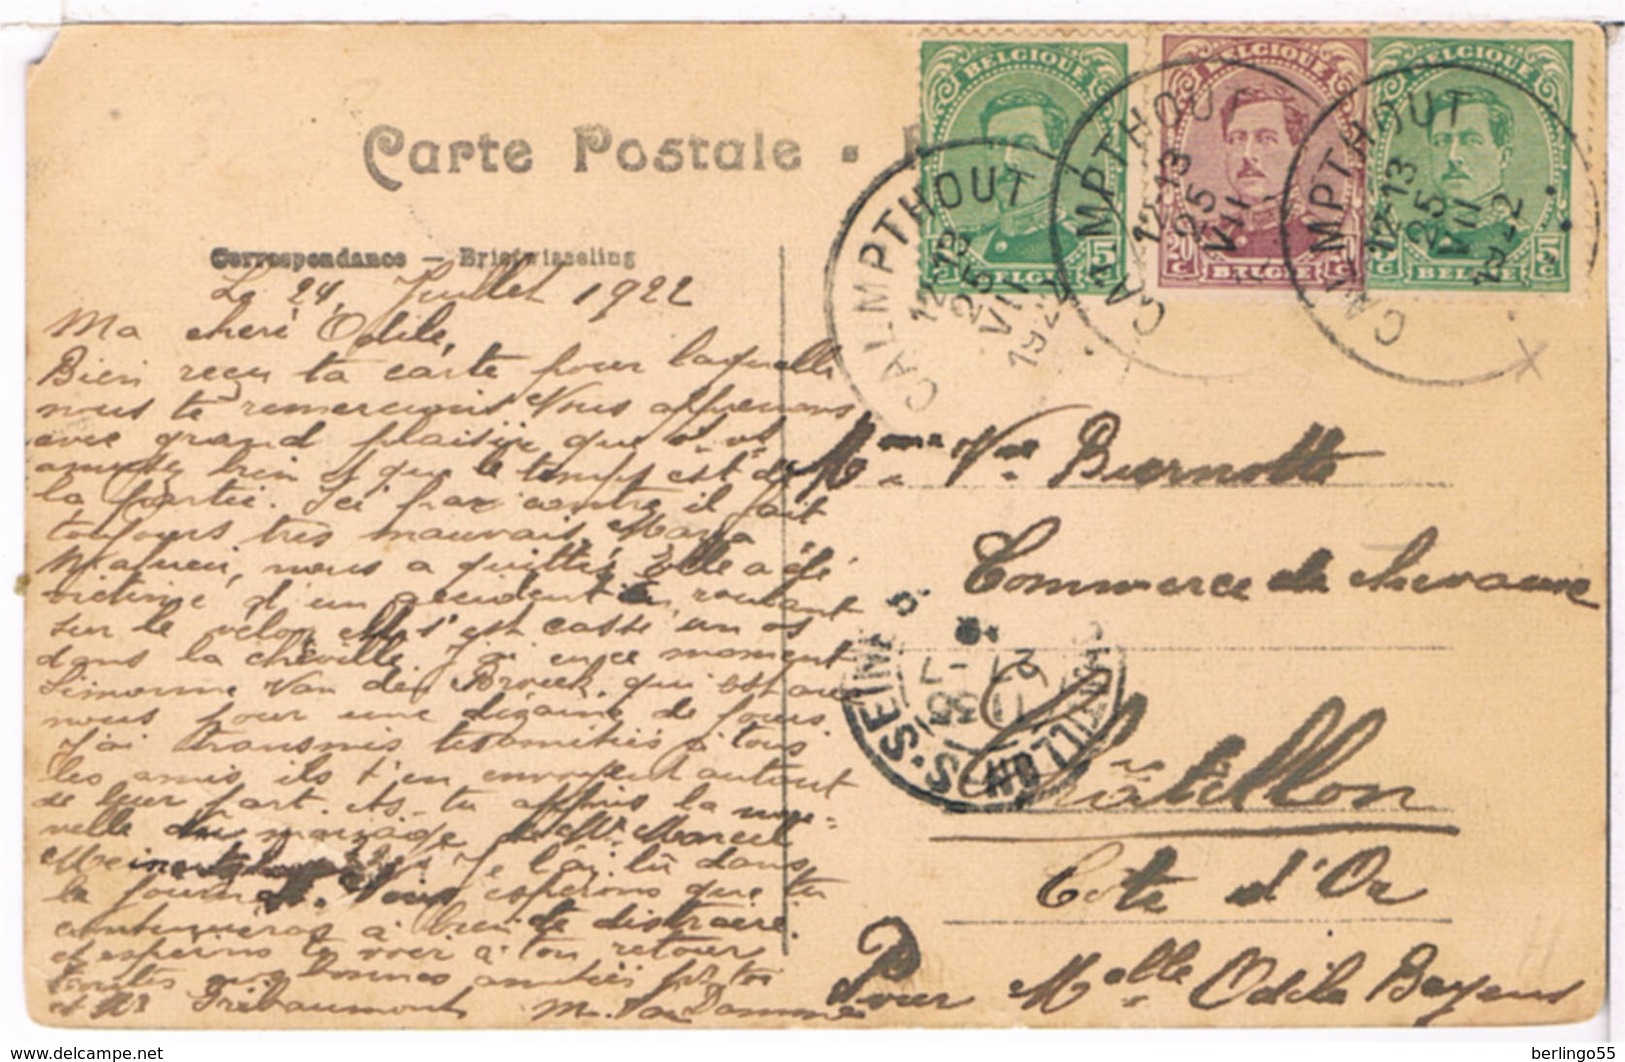 BELGIQUE
BELGIQUE
BELGIQUE
5 C BELGIË 5 C
20 C BELGIË
5 C BELGIË 5 C
Carte Postale
CALMPTHOUT
12-13
25
VII
1922
CALMPTHOUT
12-13
25
VII
CALMPTHOUT
12-13
25
VII
Correspondance — Briefwisseling
Le 24, Juillet 1922
Ma cheri Odile,
Bien reçu ta carte pour laquelle
nous te remercions Nous apprenons
avec grand plaisir que
bien que le temps est de
la partie. Ici par contre il fait
toujours très mauvais, Maria
nous a quitté Elle a été
victime d'un accident en roulant
sur le vélo elle s'est cassé un os
dans la cheville. J'ai en ce moment
Simonne Van den Broeck, qui est
nous pour une dizaine de jours
J'ai transmis tes amitiés à tous
les amis, ils t'en envoyent autant
de leur part. As-tu appris la nou=
velle du mariage de Mr Marcel
Je l'ai lû dans
le journal. Nous espérons que tu
continueras à bien te distraire
et espérons te voir à ton retour
bonnes amitiés pr toi
et Mr Tribaumont M. Van Damme
Mme Vve Biernotte
Commerce de chevaux
Châtillon
Côte d'Or
Pour Melle Odile Beyens
CHATILLON-S-SEINE
11 35
27 -7
berlingo55